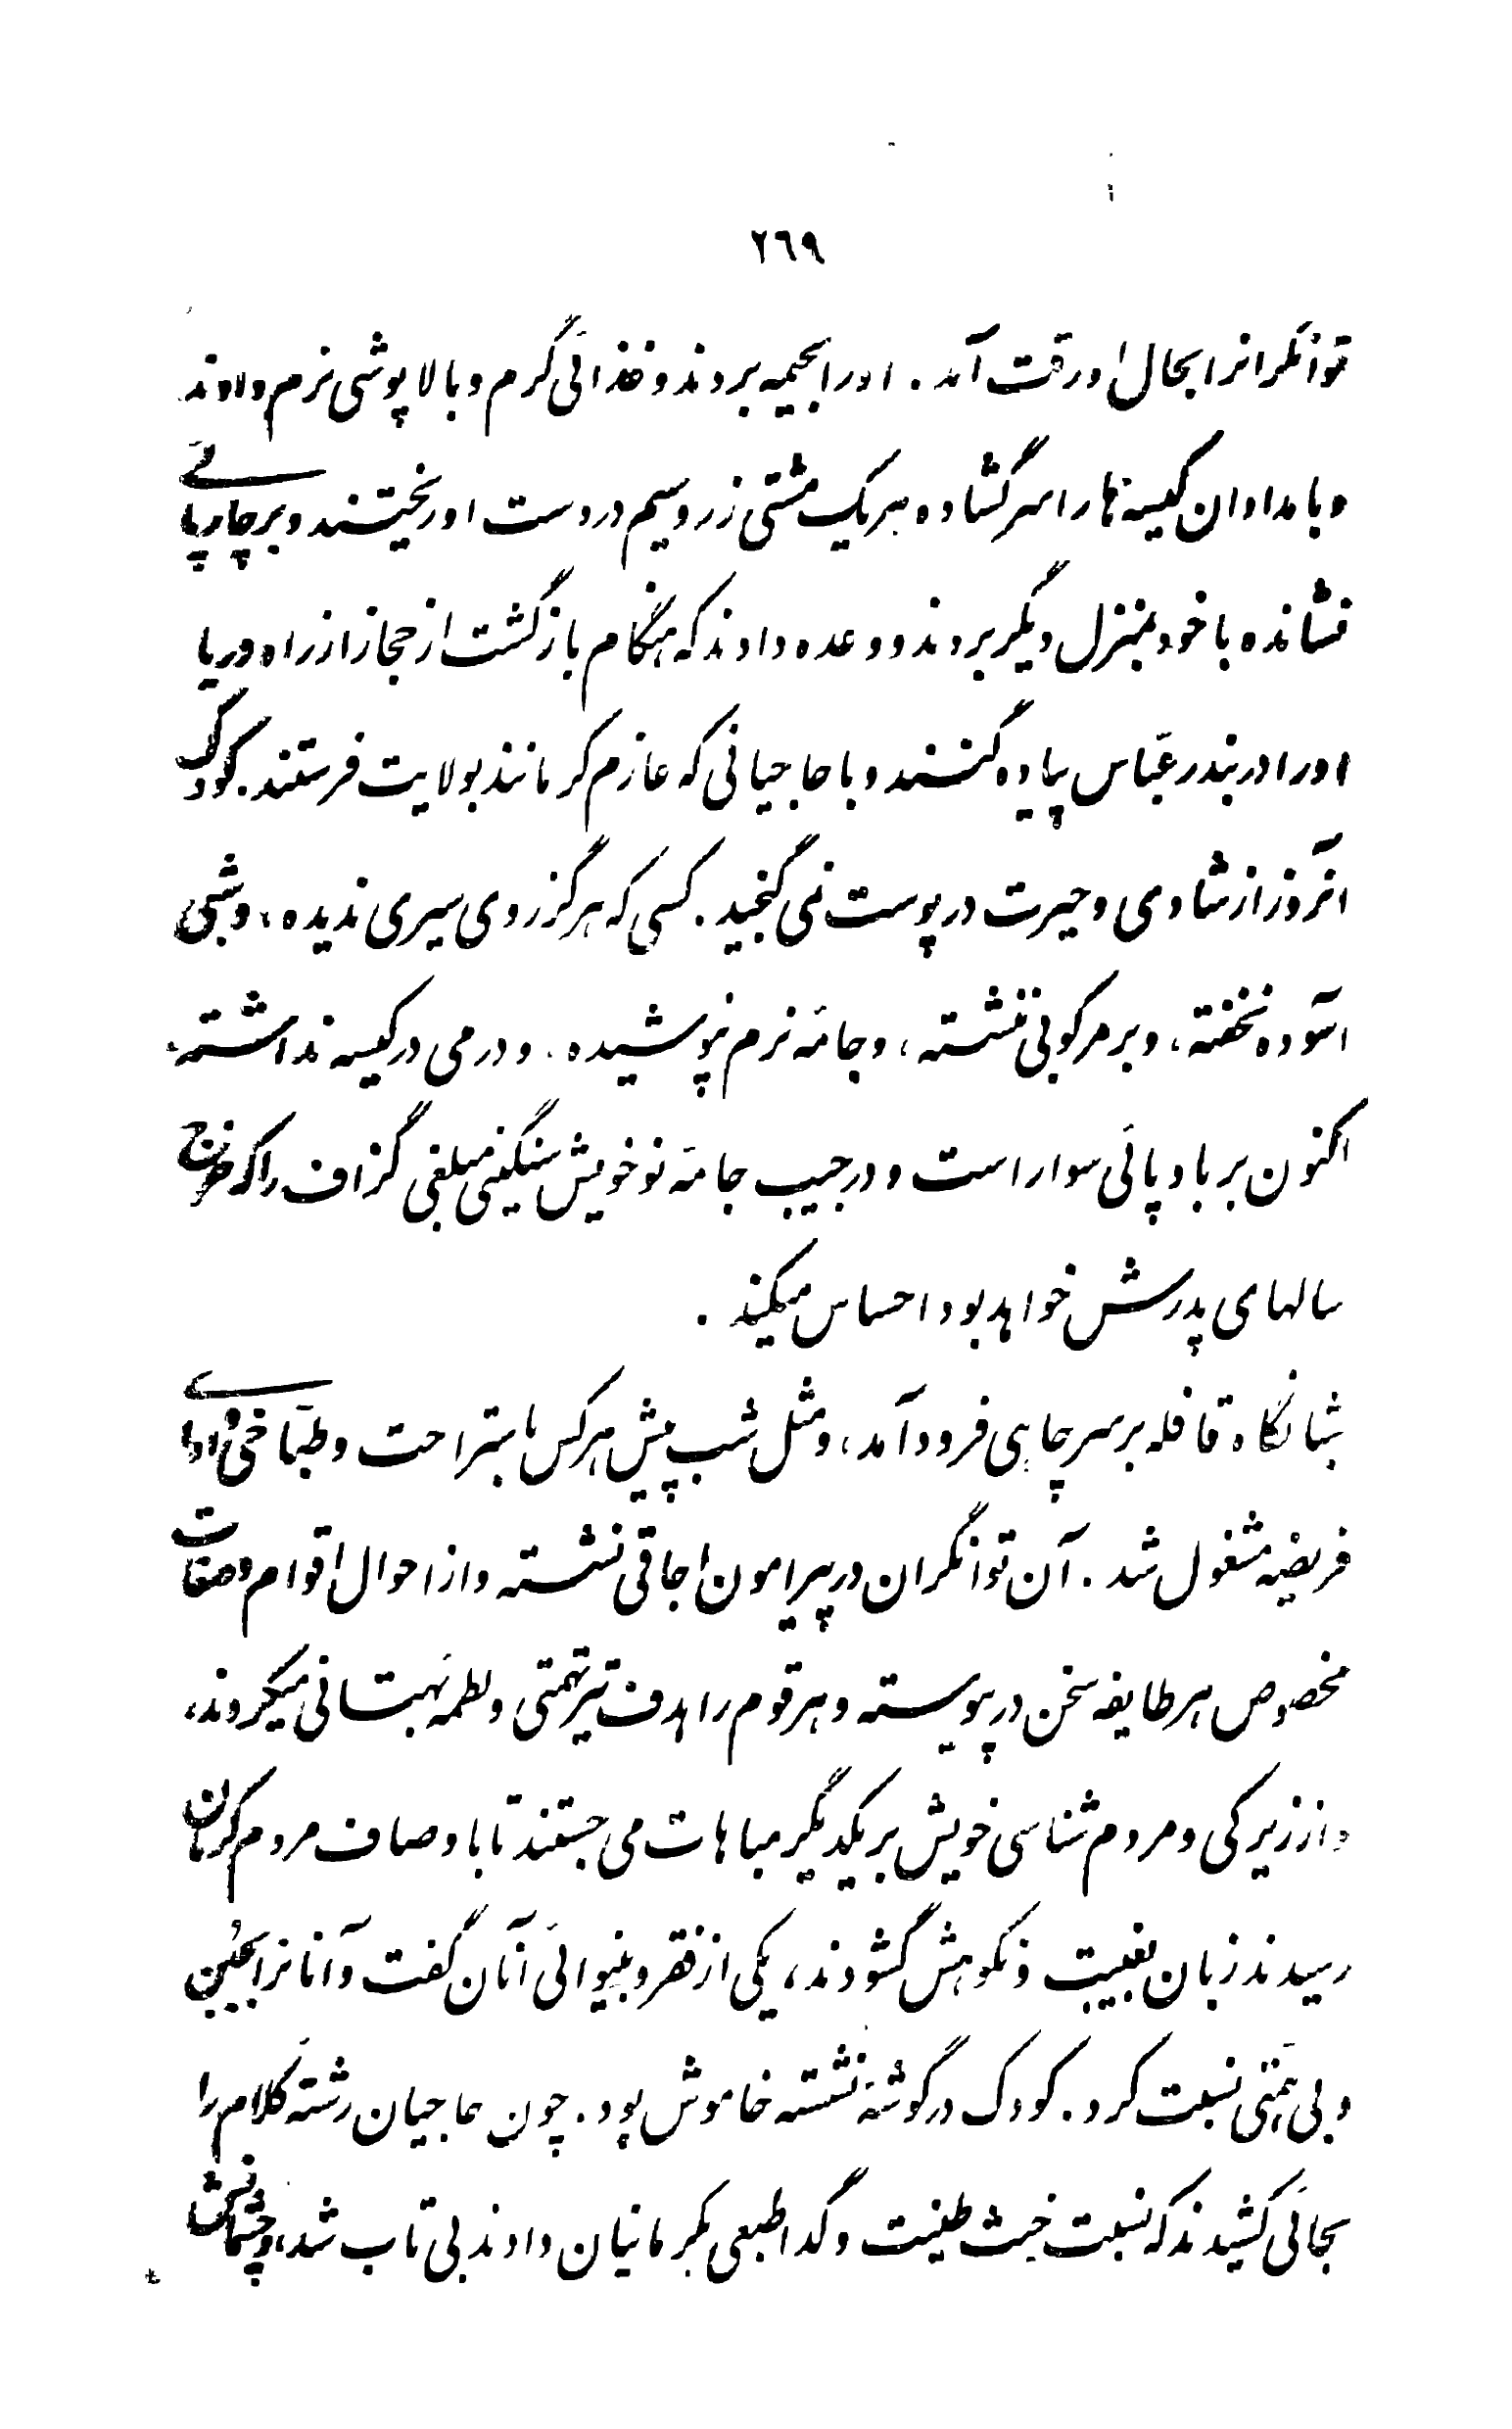 ٢٦٩
توانگرانرا بحال او رقت آمد. اورا بخیمه بردند و غذائی گرم و بالاپوشی نرم دادند
و بامدادان کیسه‌ها را سر گشاده هر یک مشتی زر و سیم در دست او ریختند و بر چارپائے
نشانده با خود بمنزل دیگر بردند و وعده دادند که هنگام بازگشت از حجاز از راه دریا
اورا در بندر عبّاس پیاده کنند و با حاجیانی که عازم کرمانند بولایت فرستند. کودک
آنروز از شادی و حیرت در پوست نمی گنجید. کسی که هرگز روی سیری ندیده، و شبی
آسوده نخفته، و بر مرکوبی ننشسته، و جامهٔ نرم نپوشیده. و درمی در کیسه نداشته.
اکنون بر بادپائی سوار است و در جیب جامهٔ نو خویش سنگینی مبلغی گزاف را که خرج
سالهای پدرش خواهد بود احساس میکند.
شبانگاه قافله بر سر چاهی فرود آمد، و مثل شب پیش هر کس باستراحت و طبّاخی و ادائے
فریضه مشغول شد. آن توانگران در پیرامون اجاقی نشسته و از احوال اقوام و صفات
مخصوص هر طایفه سخن در پیوسته و هر قوم را هدف تیر تهمتی و لطمهٔ بهتانی میکردند،
و از زیرکی و مردم شناسی خویش بر یکدیگر مباهات می جستند تا باوصاف مردم کرمان
رسیدند زبان بغیبت و نکوهش گشودند، یکی از فقر و بینوائی آنان گفت و آنانرا بجُبن
و بی همّتی نسبت کرد. کودک در گوشهٔ نشسته خاموش بود. چون حاجیان رشتهٔ کلام را
بجائی کشیدند که نسبت خبث طینت و گداطبعی بکرمانیان دادند بی تاب شد، و چشمانش